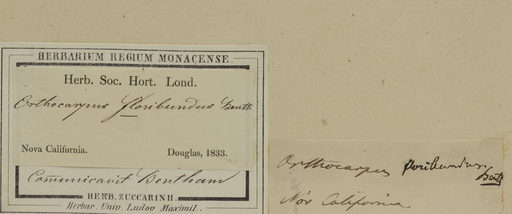 HERBARIUM REGIUM MONACENSE.
Herb. Soc. Hort. Lond.
Orthocarpus floribundus Benth
Nova California. Douglas, 1833.
Comunicavit Bentham
HERB. ZUCCARINII.
Herbar. Univ. Ludov. Maximil.
Orthocarpus floribundus Benth
Nov California